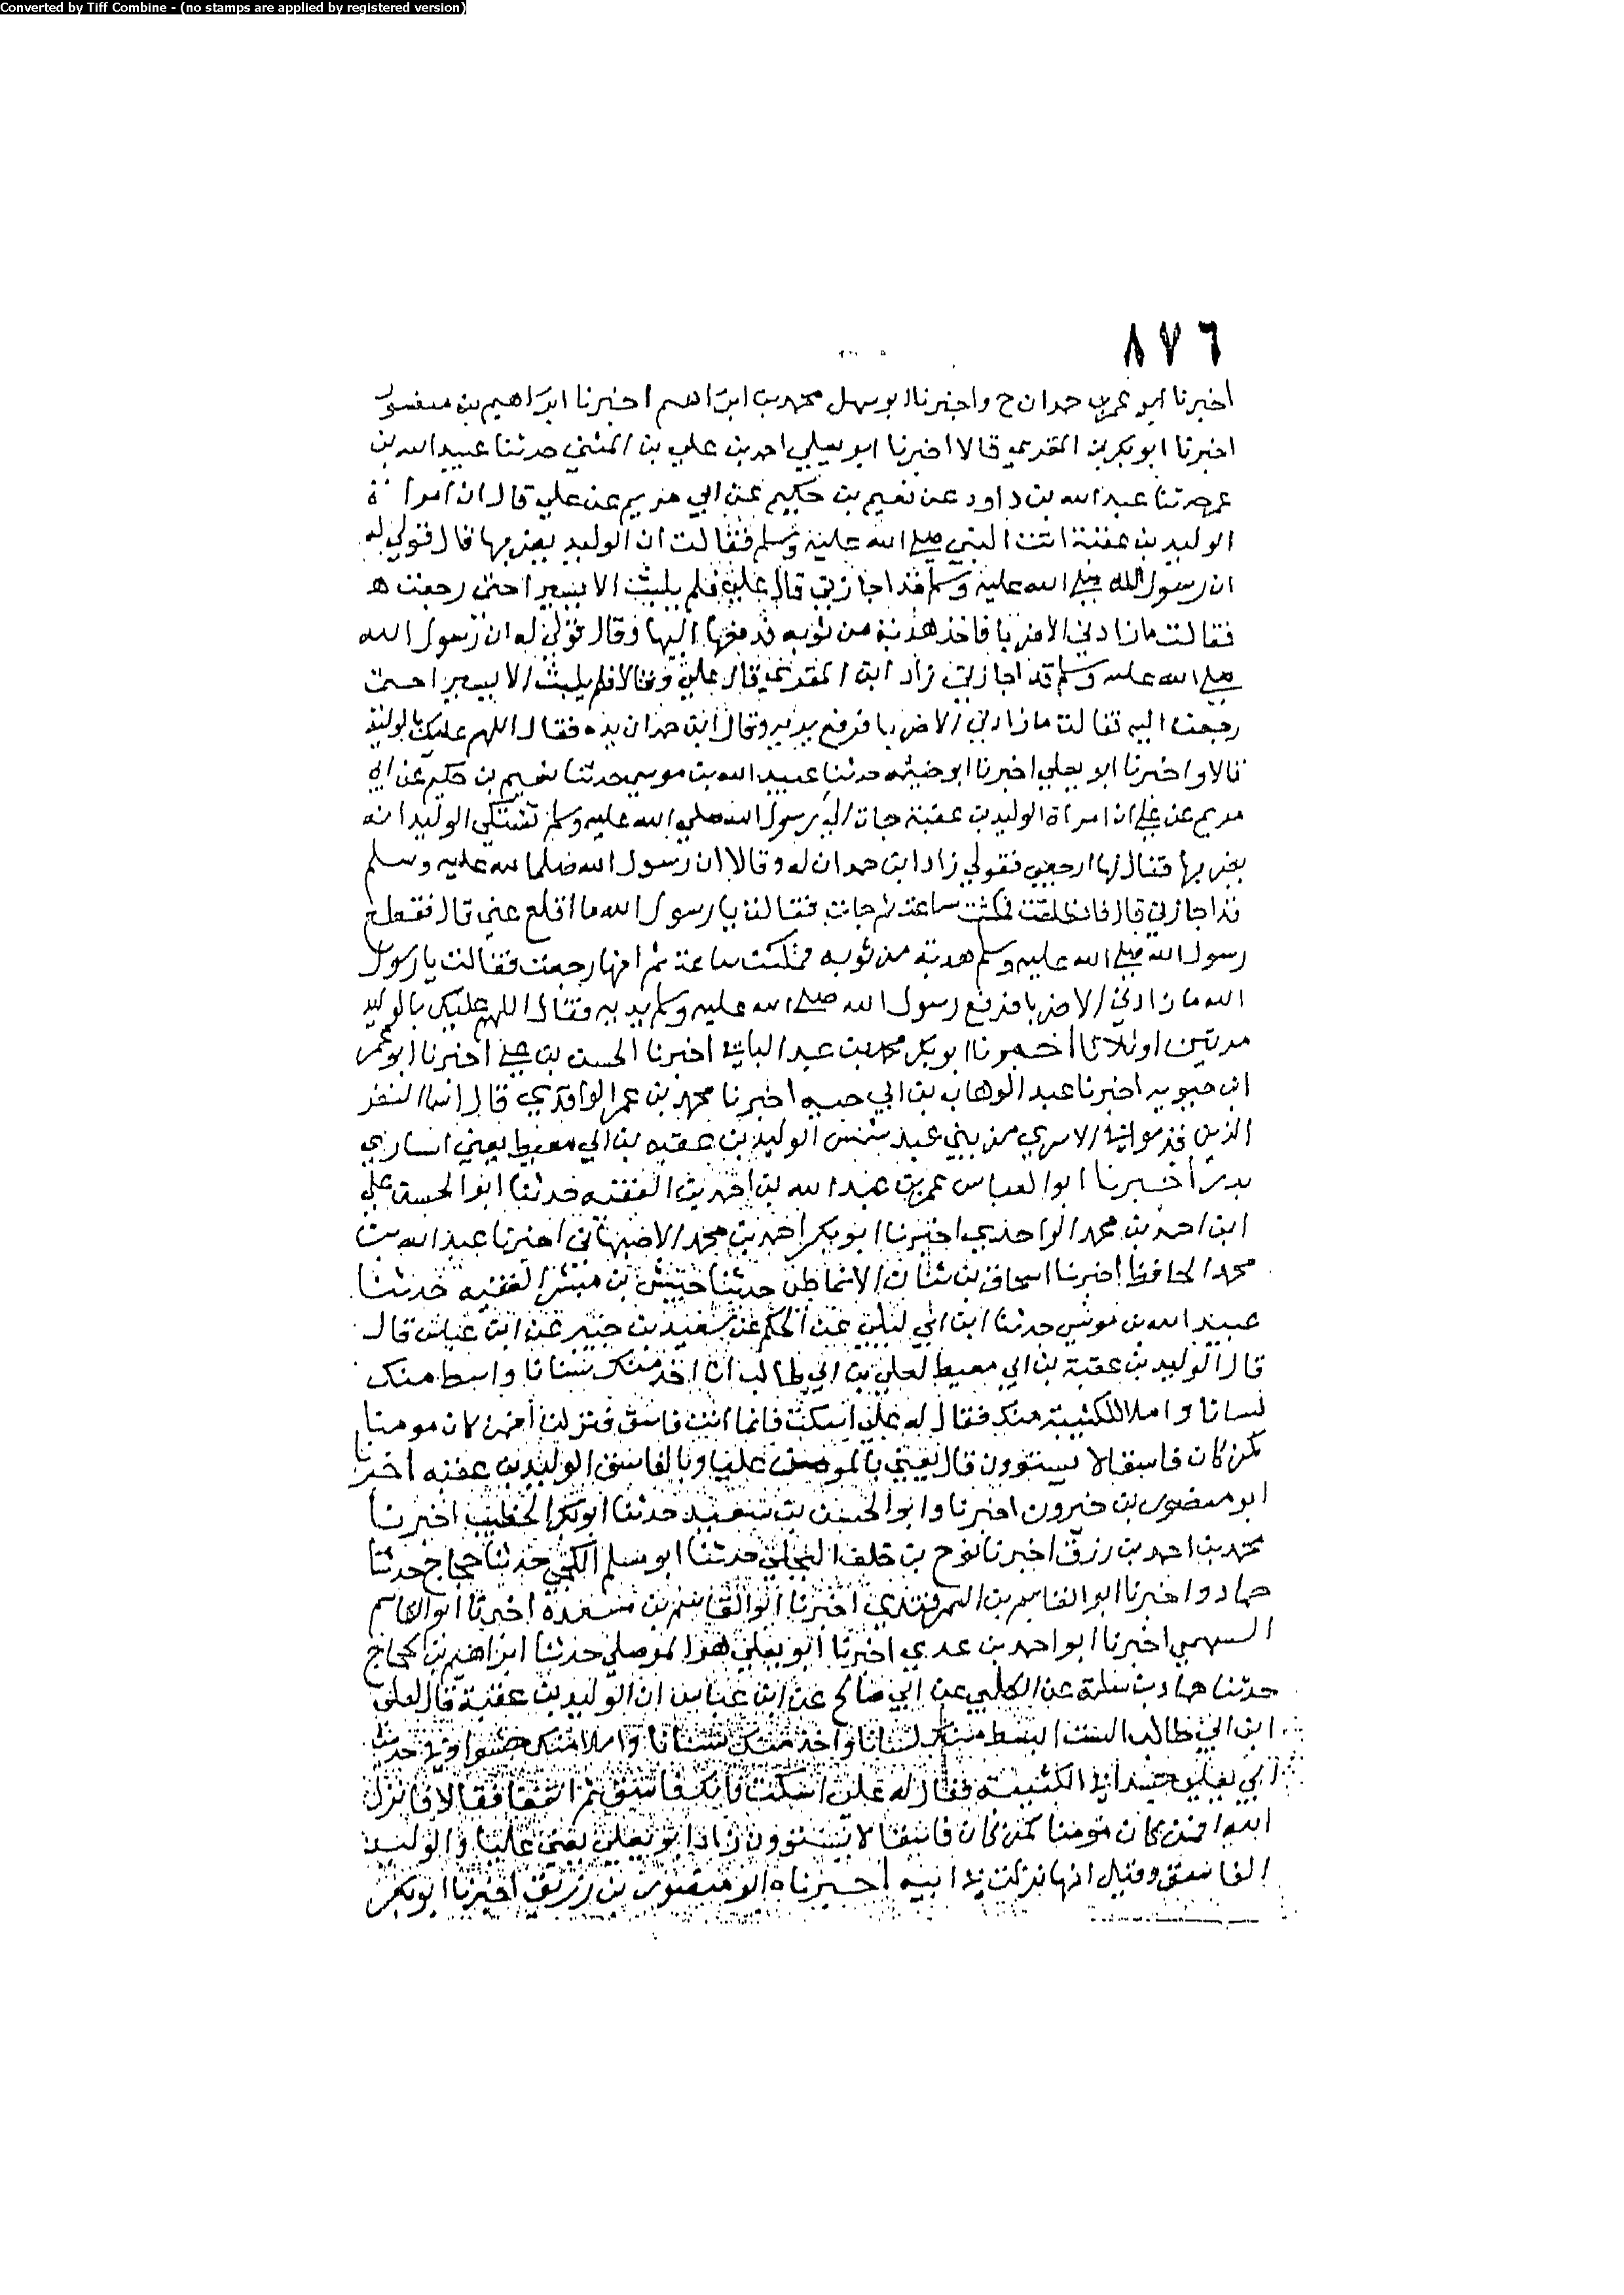 Converted by Tiff Combine - (no stamps are applied by registered version)
٨٧٦
اخبرنا ابو عمرو بن حمدان ح واخبرنا ابو سهل محمد بن ابراهيم اخبرنا ابراهيم بن منصور
اخبرنا ابو بكر بن المقري قالا اخبرنا ابو يعلي احمد بن علي بن المثني حدثنا عبيد الله بن
عمر حدثنا عبد الله بن داود عن نعيم بن حكيم عن ابي مريم عن علي قال ان امراة
الوليد بن عقبة اتت النبي صلى الله عليه وسلم فقالت ان الوليد يضربها قال قولي له
ان رسول الله صلى الله عليه وسلم قد اجازني قال علي فلم يلبث الا يسيرا حتى رجعت
فقالت ما زادني الا ضربا فاخذ هدبة من ثوبه فدفعها اليها وقال قولي له ان رسول الله
صلى الله عليه وسلم قد اجازني زاد ابن المقري قال علي وقالا فلم يلبث الا يسيرا حتى
رجعت اليه فقالت ما زادني الا ضربا فرفع يديه وقال ابن حمدان يده فقال اللهم عليك بالوليد
قالا واخبرنا ابو يعلي اخبرنا ابو خيثمه حدثنا عبيد الله بن موسي حدثنا نعيم بن حكيم عن ابي
مريم عن علي ان امراة الوليد بن عقبة جات الي رسول الله صلى الله عليه وسلم تشتكي الوليد انه
يضربها فقال لها ارجعي فقولي زاد ابن حمدان له وقالا ان رسول الله صلى الله عليه وسلم
قد اجازني قال فانطلقت فمكثت ساعة ثم جات فقالت يا رسول الله ما اقلع عني قال فقطع
رسول الله صلى الله عليه وسلم هدبة من ثوبه فمكثت ساعة ثم انها رجعت فقالت يا رسول
الله ما زادني الا ضربا فرفع رسول الله صلى الله عليه وسلم يديه فقال اللهم عليك بالوليد
مرتين او ثلاثا اخبرنا ابو بكر محمد بن عبد الباقي اخبرنا الحسن بن علي اخبرنا ابو عمر
ابن حيويه اخبرنا عبد الوهاب بن ابي حيه اخبرنا محمد بن عمر الواقدي قال اسما النفر
الذين قدموا في الاسري من بني عبد شمس الوليد بن عقبه بن ابي معيط يعني اساري
بدر اخبرنا ابو العباس عمر بن عبد الله بن احمد بن الفقيه حدثنا ابو الحسن علي
ابن احمد بن محمد الواحدي اخبرنا ابو بكر احمد بن محمد الاصبهاني اخبرنا عبد الله بن
محمد الحافظ اخبرنا اسحاق بن بنان الانماطي حدثنا حبيش بن مبشر الفقيه حدثنا
عبيد الله بن موسي حدثنا ابن ابي ليلي عن الحكم عن سعيد بن جبير عن ابن عباس قال
قال الوليد بن عقبة بن ابي معيط لعلي بن ابي طالب انا احد منك سنانا وابسط منك
لسانا واملا للكتيبة منك فقال له علي اسكت فانما انت فاسق فنزلت افمن كان مومنا
كمن كان فاسقا لا يستوون قال يعني بالمومن عليا وبالفاسق الوليد بن عقبه اخبرنا
ابو منصور بن خيرون اخبرنا وابو الحسن بن سعيد حدثنا ابو بكر الخطيب اخبرنا
محمد بن احمد بن رزق اخبرنا نوح بن خلف البجلي حدثنا ابو مسلم الكجي حدثنا حجاج حدثنا
حماد واخبرنا ابو القاسم بن السمرقندي اخبرنا ابو القاسم بن مسعدة اخبرنا ابو القاسم
السهمي اخبرنا ابو احمد بن عدي اخبرنا ابو يعلي هو الموصلي حدثنا ابراهيم بن الحجاج
حدثنا حماد بن سلمة عن الكلبي عن ابي صالح عن ابن عباس ان الوليد بن عقبة قال لعلي
ابن ابي طالب الست ابسط منك لسانا واحد منك سنانا واملا منك حشوا وفي حديث
ابي يعلي جسدا في الكتيبة فقال له علي اسكت فانك فاسق ثم اتفقا فقالا فانزل
الله افمن كان مومنا كمن كان فاسقا لا يستوون زاد ابو يعلي يعني عليا والوليد
الفاسق وقيل انها نزلت في ابيه اخبرناه ابو منصور بن زريق اخبرنا ابو بكر